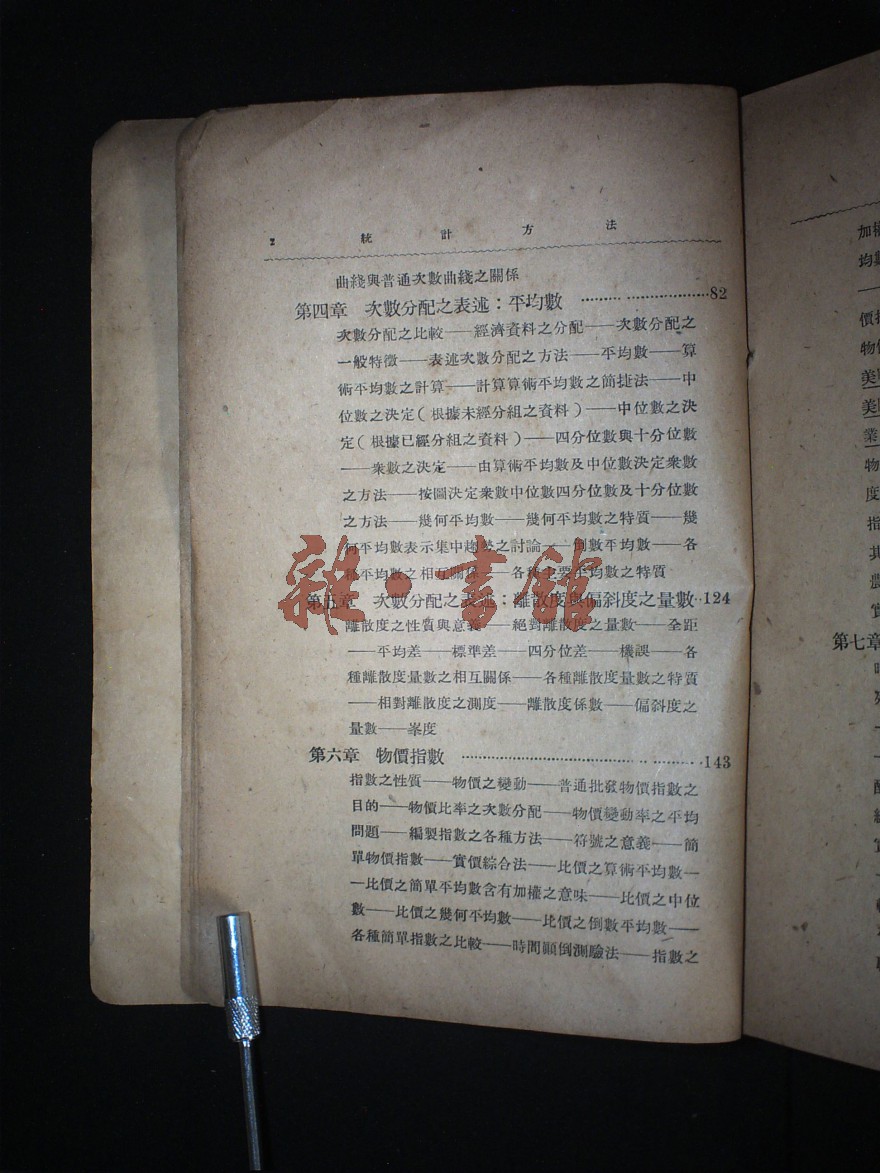 2 統計方法
曲綫與普通次數曲綫之關係
第四章 次數分配之表述：平均數 ……………………82
次數分配之比較——經濟資料之分配——次數分配之
一般特徵——表述次數分配之方法——平均數——算
術平均數之計算——計算算術平均數之簡捷法——中
位數之決定（根據未經分組之資料）——中位數之決
定（根據已經分組之資料）——四分位數與十分位數
——衆數之決定——由算術平均數及中位數決定衆數
之方法——按圖決定衆數中位數四分位數及十分位數
之方法——幾何平均數——幾何平均數之特質——幾
何平均數表示集中趨勢之討論——倒數平均數——各
種平均數之相互關係——各種主要平均數之特質
第五章 次數分配之表述：離散度與偏斜度之量數··124
離散度之性質與意義——絕對離散度之量數——全距
——平均差——標準差——四分位差——機誤——各
種離散度量數之相互關係——各種離散度量數之特質
——相對離散度之測度——離散度係數——偏斜度之
量數——峯度
第六章 物價指數 ……………………………………143
指數之性質——物價之變動——普通批發物價指數之
目的——物價比率之次數分配——物價變動率之平均
問題——編製指數之各種方法——符號之意義——簡
單物價指數——實價綜合法——比價之算術平均數—
—比價之簡單平均數含有加權之意味——比價之中位
數——比價之幾何平均數——比價之倒數平均數——
各種簡單指數之比較——時間顚倒測驗法——指數之
雜·書館
加權
均數
價指
物價
美國
美國
業
物
度
指
其
農
實
第七章